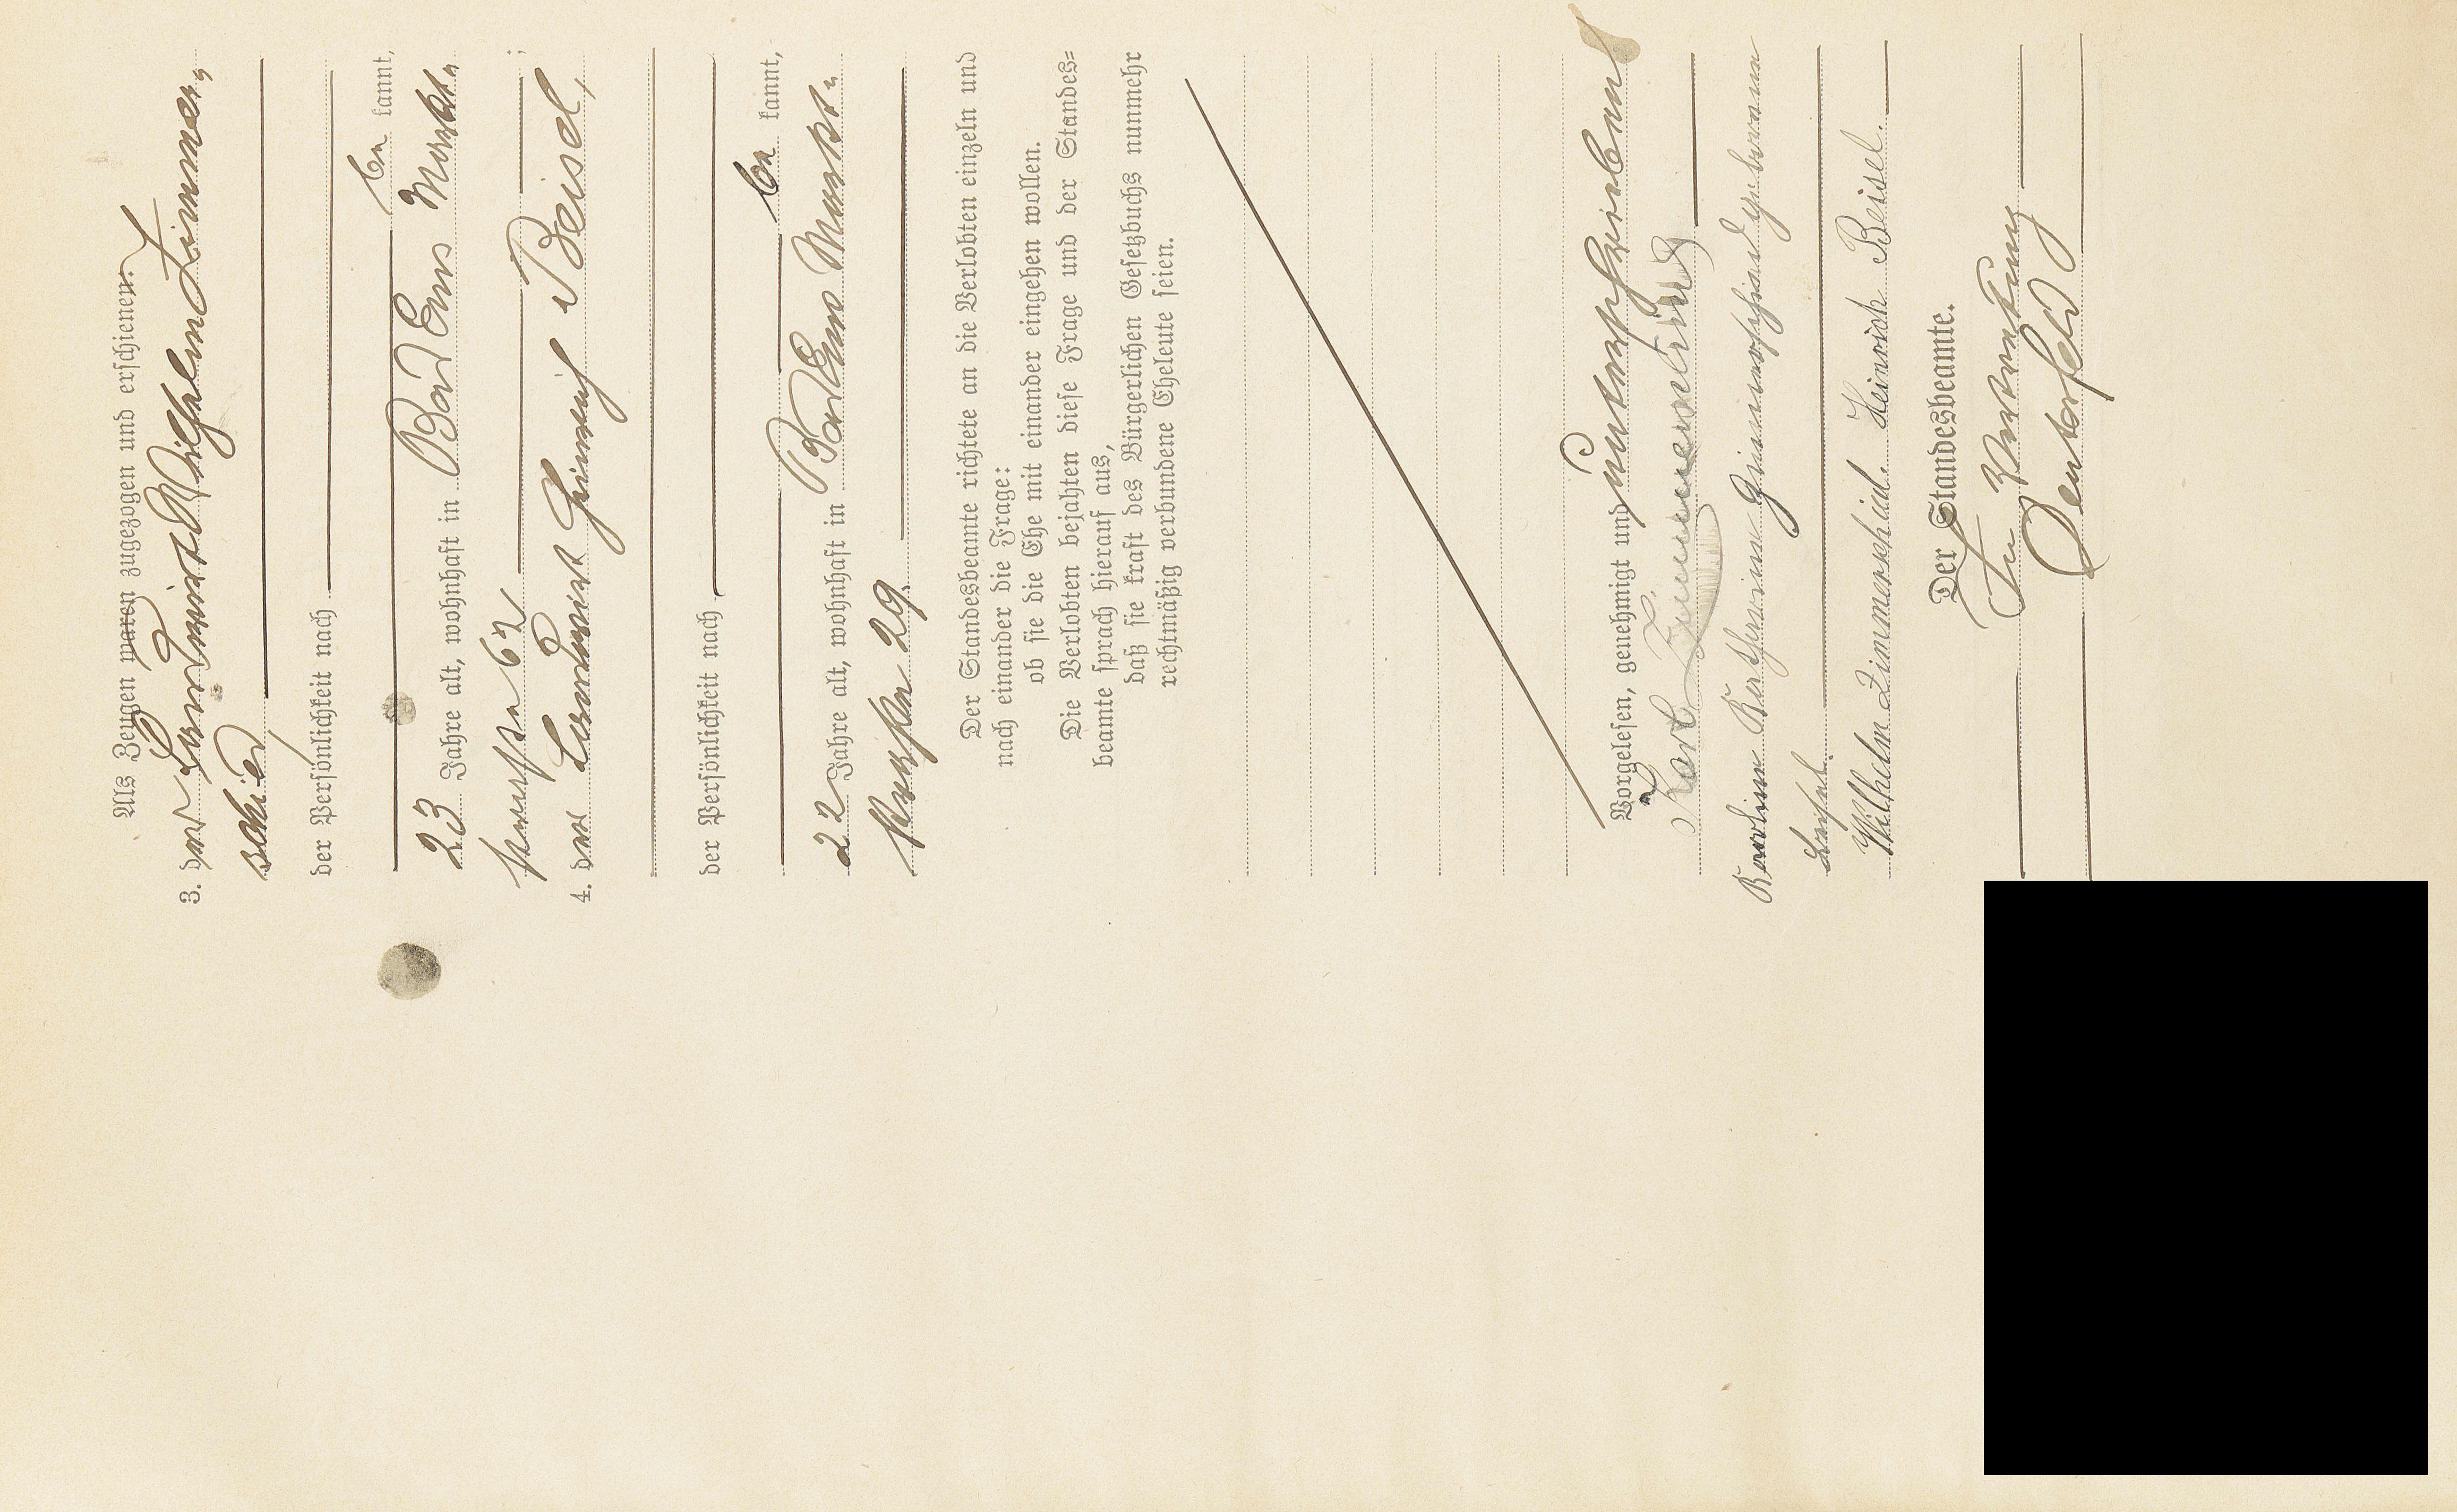 Als Zeugen waren zugezogen und erschienen:
3. der Landwirt Wilhelm Zimmer-
schied
der Persönlichkeit nach
be kannt,
23 Jahre alt, wohnhaft in Bad Ems Markt-
straße 62 ;
4. der Landwirt Heinrich Beisel,
der Persönlichkeit nach
be kannt,
22 Jahre alt, wohnhaft in Bad Ems Markt-
straße 29.
Der Standesbeamte richtete an die Verlobten einzeln und
nach einander die Frage:
ob sie die Ehe mit einander eingehen wollen.
Die Verlobten bejahten diese Frage und der Standes-
beamte sprach hierauf aus,
daß sie kraft des Bürgerlichen Gesetzbuchs nunmehr
rechtmäßig verbundene Eheleute seien.
Vorgelesen, genehmigt und unterschrieben
Karl Zimmerschied
Karoline Katharina Zimmerschied geborene
Beisel.
Wilhelm Zimmerschied. Heinrich Beisel.
Der Standesbeamte.
In Vertretung